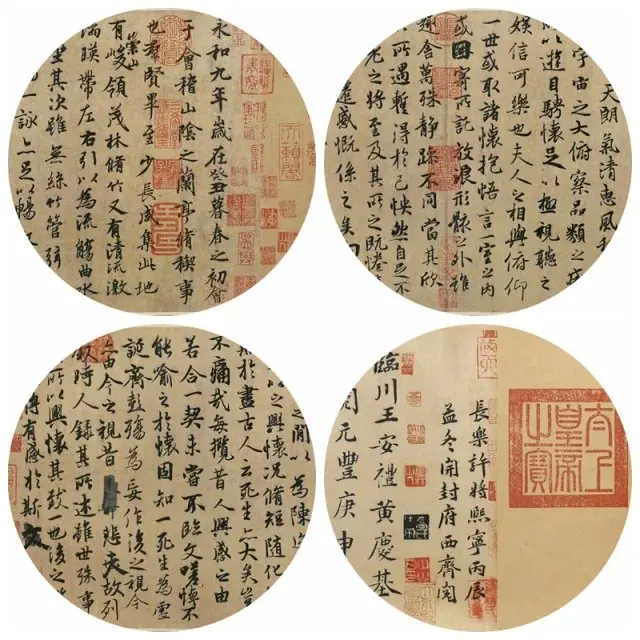 永和九年歲在癸丑暮春之初會
于會稽山陰之蘭亭脩禊事
也羣賢畢至少長咸集此地
有崇山峻領茂林脩竹又有清流激
湍暎帶左右引以為流觴曲水
坐其次雖無絲竹管弦
一詠亦足以暢
天朗氣清惠風和
宇宙之大俯察品類之盛
所以遊目騁懷足以極視聽之
娛信可樂也夫人之相與俯仰
一世或取諸懷抱悟言一室之內
或因寄所託放浪形骸之外雖
趣舍萬殊靜躁不同當其欣
於所遇蹔得於己怏然自足不
老之將至及其所之既惓
遷感慨係之矣向
之閒以為陳迹
以之興懷況脩短隨化
於盡古人云死生亦大矣豈
不痛哉每攬昔人興感之由
若合一契未嘗不臨文嗟悼不
能喻之於懷固知一死生為虛
誕齊彭殤為妄作後之視今
亦由今之視昔悲夫故列
敘時人錄其所述雖世殊事
所以興懷其致一也後之
將有感於斯文
太上皇帝之寶
長樂許將熙寧丙辰
孟冬開封府西齋閱
臨川王安禮黃慶基
閱元豐庚申